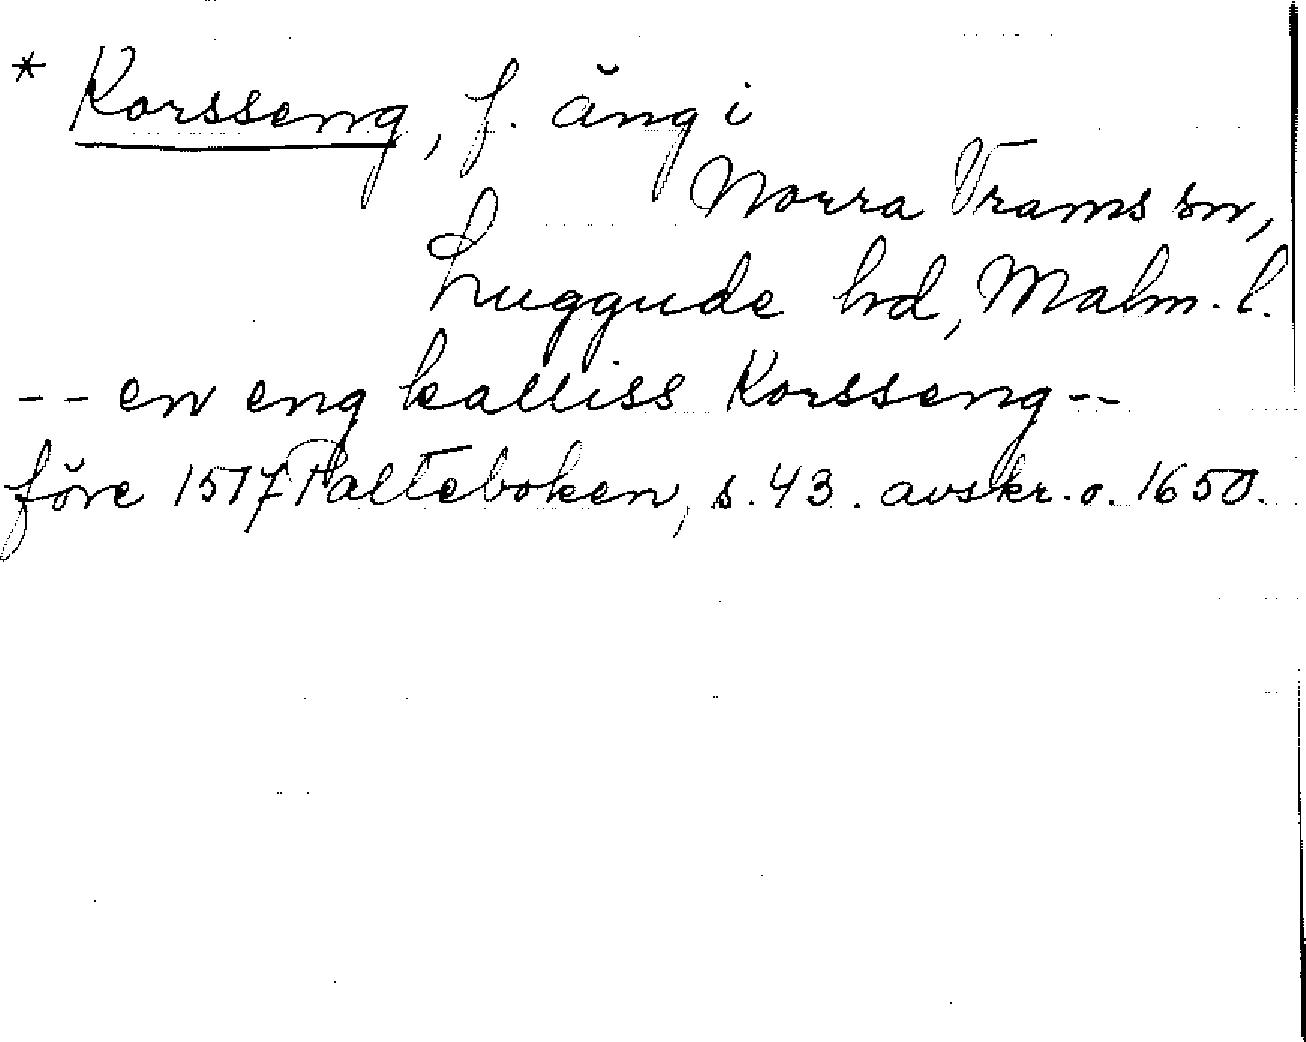 * Korsseng, f. äng i
Norra Vrams sn,
Luggude hd, Malm. l.
-- en eng kalliss Korsseng --
före 1517 Palteboken, s. 43. avskr. o. 1650.